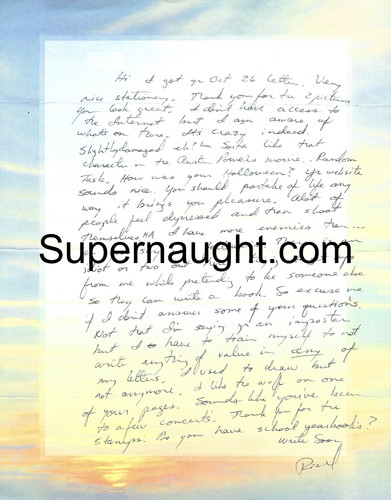 Hi I got yr Oct 26 letter. Very
nice stationery. Thank you for the 2 pictures
You look great. I don't have access to
the Internet but I am aware of
whats on there. Its crazy indeed.
Slightlydamaged eh? Im Sorta like that
character in the Austin Powers movie. Random
Task. How was your Halloween? Yr website
sounds nice. You should partake of life any
way it brings you pleasure. Alot of
people feel depressed and then shoot
themselves HA I have more enemies than...
Supernaught.com
idiot or two out
from me while pretending to be someone else
so they can write a book. So excuse me
if I don't answer some of your questions.
Not that I'm saying yr an imposter
but I have to train myself to not
write anything of value in any of
my letters. I used to draw but
not anymore. I like the wolf on one
of your pages. Sounds like you've been
to a few concerts. Thank You for the
stamps. Do you have school yearbooks?
Write Soon